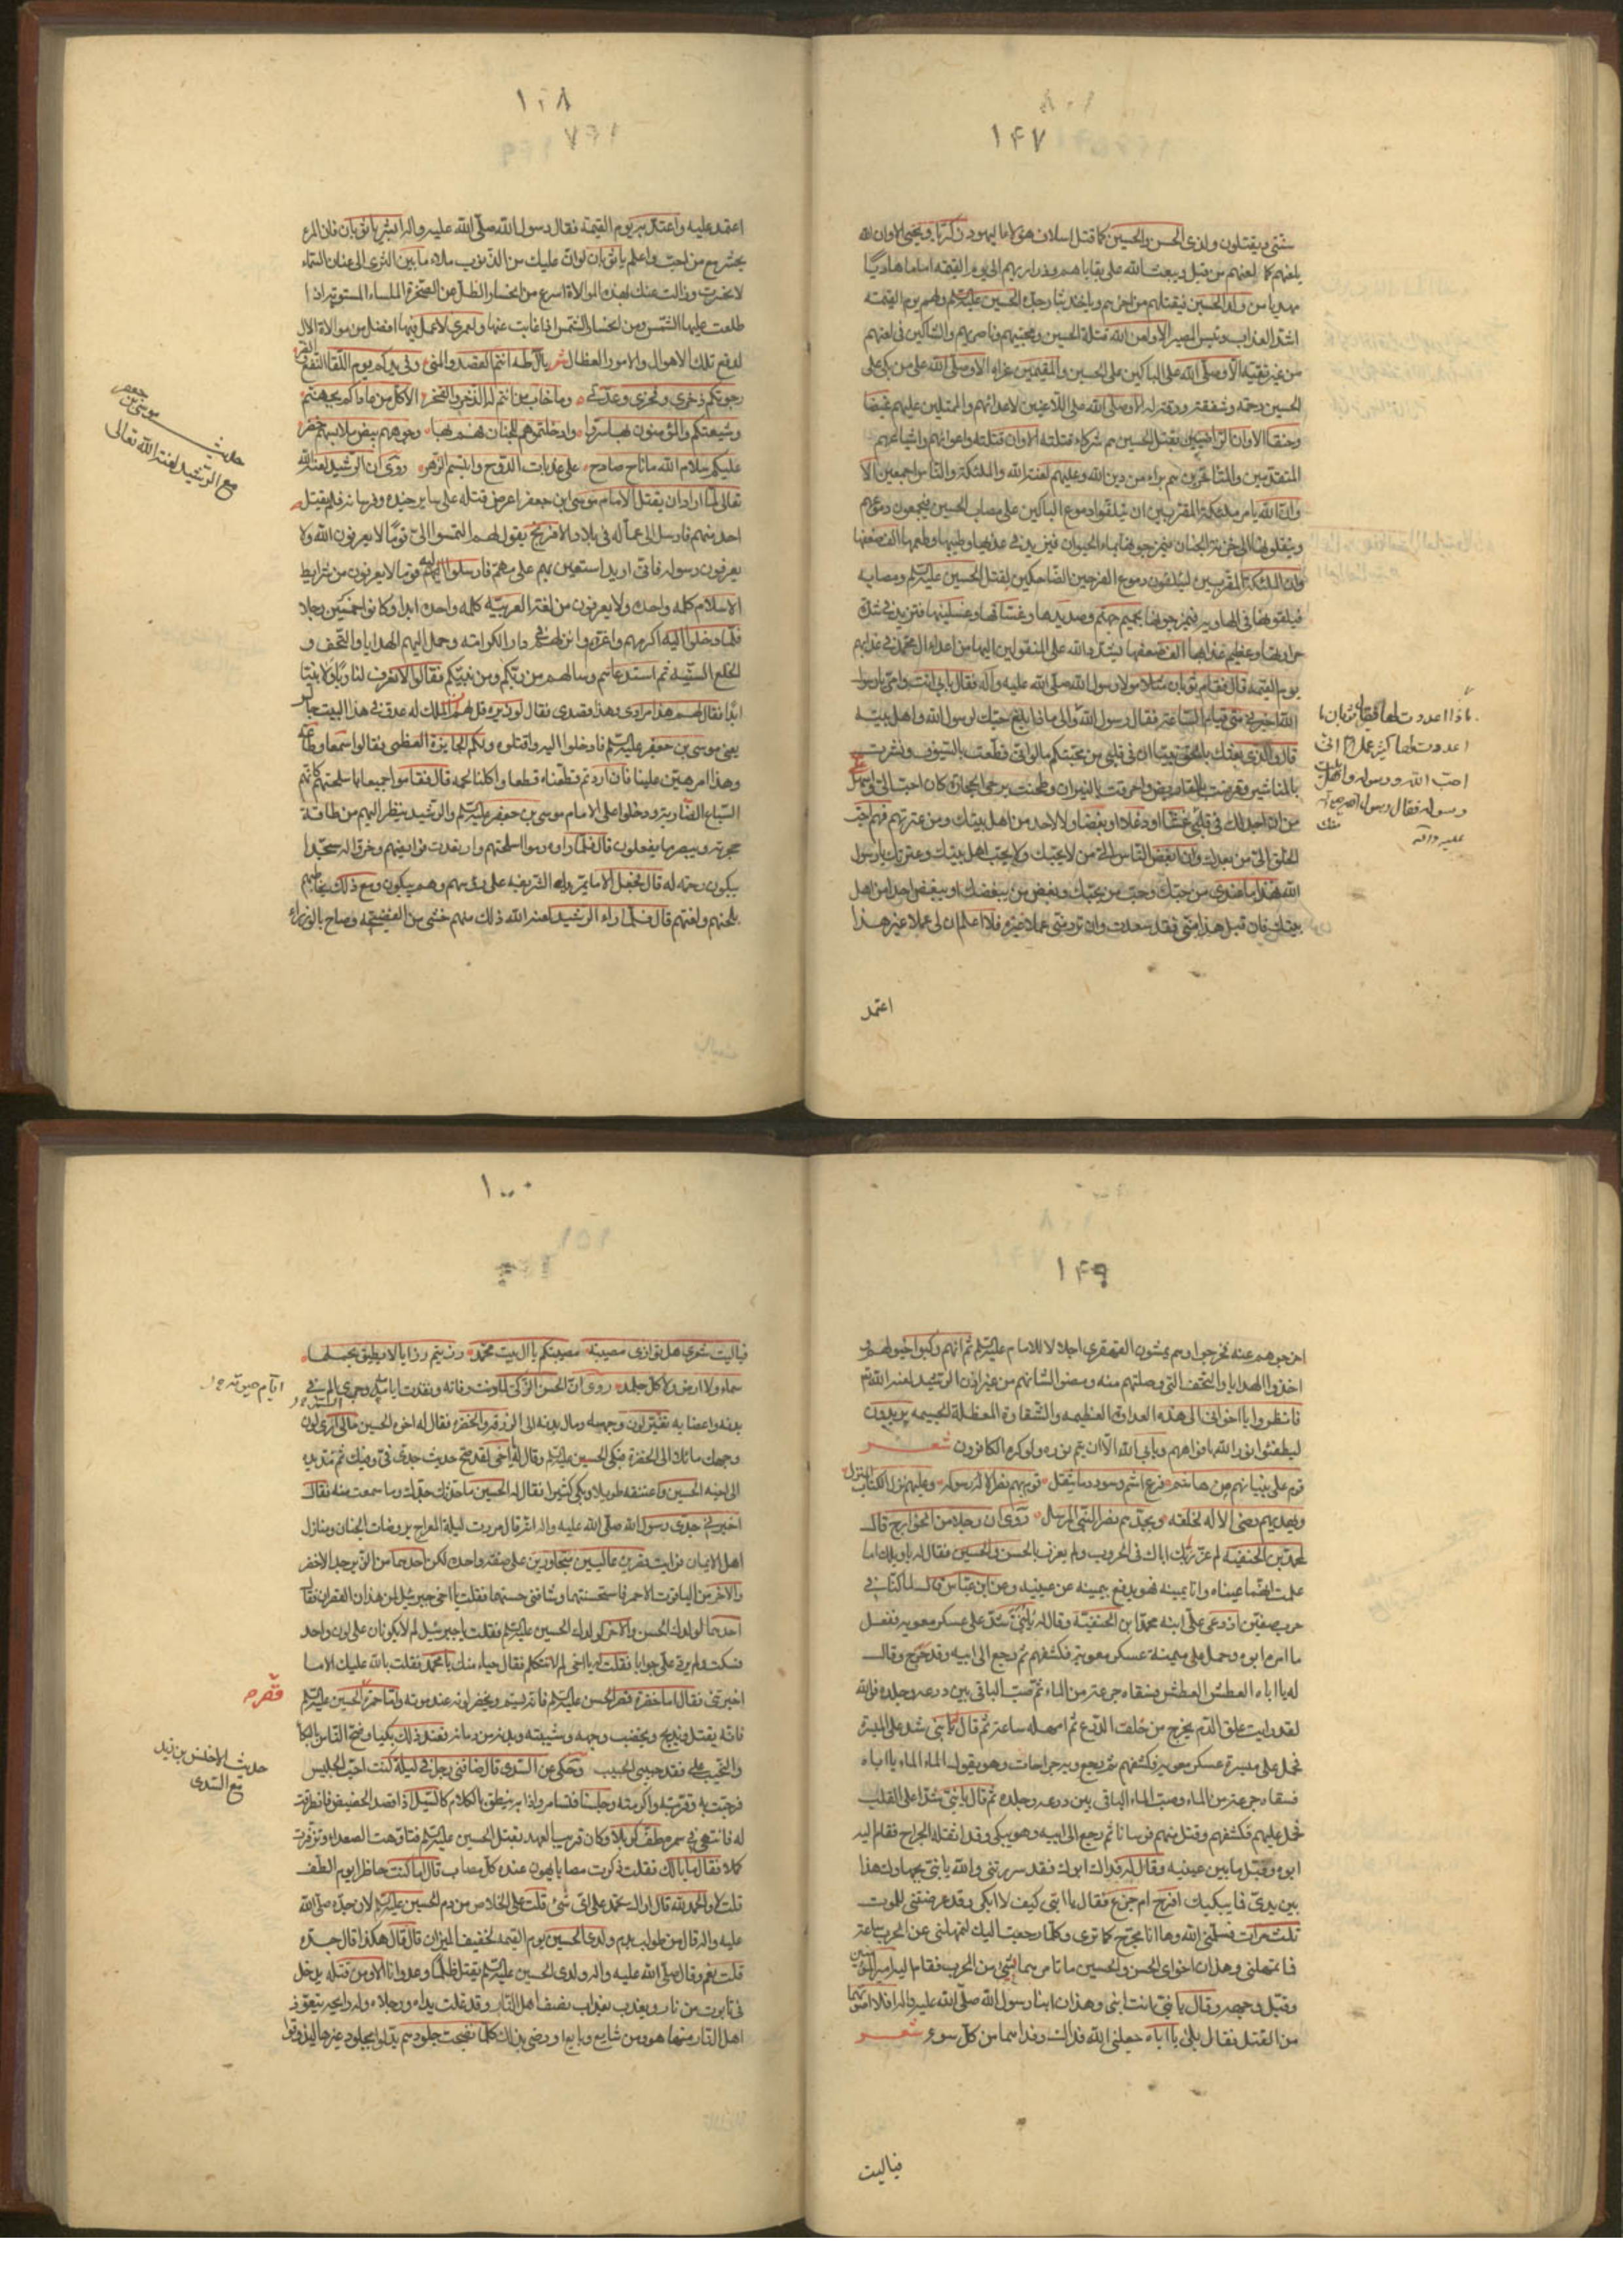 ١٤٧
سنتي ويقتلون ولدي الحسن والحسين كما قتل اسلاف هؤلاء اليهود زكريا ويحيى الا وان الله
يلعنهم كما لعنهم من قبل ويبعث الله على بقايا هم وذراريهم الى يوم القيمة اماما هاديا
مهديا من ولد الحسين
اشد العذاب وبئس المصير الا ولعن الله قتلة الحسين ومحبيهم وناصريهم والساكتين في لعنهم
من غير تقية الا وصلى الله على الباكين على الحسين والمقيمين عزاه الا وصلى الله على من بكى على
الحسين رحمة وشفقة
وحنقا الا وان الراضين بقتل الحسين هم شركاء قتلته الا وان قتلته واعوانهم واشياعهم
المتقدمين والمتاخرين هم براء من دين الله وعليهم لعنة الله والملئكة والناس اجمعين الا
وان الله يامر ملئكته المقربين ان يتلقوا دموع الباكين على مصاب الحسين فيجمعون دموعهم
وينقلونها الى خزنة الجنان فيمزجونها بماء الحيوان فيزيد في عذبها وطيبها وطعمها الف ضعفها
وان الملئكة المقربين ليلتقون دموع الفرحين الضاحكين لقتل الحسين عليه السلم ومصابه
فيلقونها في الهاوية فيمزجونها بحميم جهنم وصديدها وغساقها وغسلينها فتزيد في شدة
حرارتها وعظيم عذابها الف ضعفها يشدد الله على المنقولين اليها من اعداء ال محمد في عذابهم
يوم القيمة قال فقام ثوبان مولا رسول الله صلى الله عليه وآله فقال بابي انت وامي يا رسول
الله اخبرني متى قيام الساعة فقال رسول الله والى ماذا بلغ حبك لرسول الله واهل بيته
قال والذي بعثك بالحق نبيا ان في قلبي من محبتكم ما لو اني قطعت بالسيوف ونشرت
بالمناشير وقرضت بالمقاريض واحرقت بالنيران وطحنت برحى الحجارة كان احب الي واسهل علي
من ان اجد لك في قلبي غشا او دغلا او بغضا ولا لاحد من اهل بيتك ومن عترتهم فهم احب
الخلق الي من بعدك وان ابغض الناس الي من لا يحبك ولا يحب اهل بيتك وعترتك يا رسول
الله هذا ما عندي من حبك وحب من يحبك وبغض من يبغضك او يبغض احدا من اهل
بيتك فان قبل هذا مني فقد سعدت وان ترد مني عملا غيره فلا اعلم ان لي عملا غير هذا
ماذا اعددت لها فقال ثوبان ما
اعددت لها كثير عمل الا اني
احب الله ورسوله واهل بيت
رسوله فقال رسول الله
عليه وآله
اعتمد
١٠٨
اعتمد عليه واعتد به يوم القيمة فقال رسول الله صلى الله عليه واله ابشر يا ثوبان فان المرء
يحشر مع من احب واعلم يا ثوبان لو ان عليك من الذنوب ملاء ما بين الثرى الى عنان السماء
لانحدرت وزالت عنك لهذه الموالاة اسرع من انحسار الظل عن الصخرة الملساء المستوية اذا
طلعت عليها الشمس ومن انحسار الشمس اذا غابت عنها ولعمري لا عمل فيها افضل من موالاة الال
لدفع تلك الاهوال والامور العظال شعر يا آل طه انتم القصد والمنى
رجوتكم ذخري وفخري وعدتي وما خاب من انتم له الذخر والفخر
وشيعتكم والمؤمنون لها
عليكم سلام الله ما ناح صادح على عذبات الدوح وابتسم الزهر روي ان الرشيد لعنه الله
تعالى لما اراد ان يقتل الامام موسى ابن جعفر اعرض قتله على ساير جنده وفرسانه فلم يقبله
احد منهم فارسل الى عماله في بلاد الافرنج يقول لهم التمسوا الي قوما لا يعرفون الله ولا
يعرفون رسوله فاني اريد استعين بهم على مهم فارسلوا اليه قوما لا يعرفون من شرايط
الاسلام كلمة واحدة ولا يعرفون من لغة العربية كلمة واحدة ابدا وكانوا خمسين رجلا
فلما دخلوا اليه اكرمهم واعزهم وانزلهم في دار الكرامة وحمل اليهم الهدايا والتحف و
الخلع السنية ثم استدعاهم وسالهم من ربكم ومن نبيكم فقالوا لا نعرف لنا ربا ولا نبيا
ابدا فقال لهم هذا مرادي وهذا مقصدي فقال لوزيره قل لهم ان الملك له عدو في هذا البيت جالس
يعني موسى بن جعفر عليه السلم فادخلوا اليه واقتلوه ولكم الجايزة العظمى فقالوا سمعا وطاعة
وهذا امر هين علينا فان اردتم قطعناه قطعا واكلنا لحمه قال فقاموا جميعا باسلحتهم كانهم
السباع الضارية ودخلوا على الامام موسى بن جعفر عليه السلم والرشيد ينظر اليهم من طاقة
حجرته ويبصر ما يفعلون قال فلما راوه رموا اسلحتهم وارتعدت فرائصهم وخروا له سجدا
يبكون رحمة له قال فجعل الامام يمر يده الشريفة على رؤسهم وهم يبكون ومع ذلك يخاطبهم
بلحنهم ولغتهم قال فلما راء الرشيد لعنه الله ذلك منهم خشي من الفضيحة وصاح بالوزراء
حديث موسى بن جعفر
مع الرشيد لعنه الله تعالى
١٤٩
اخرجوهم عنه فخرجوا وهم يمشون القهقرى اجلالا للامام عليه السلم ثم انهم ركبوا خيولهم و
اخذوا الهدايا والتحف التي وصلتهم منه ومضوا لشانهم من غير اذن الرشيد لعنه الله
فانظروا يا اخواني الى هذه العداوة العظيمة والشقاوة المعظلة الجسيمة يريدون
ليطفئوا نور الله بافواههم ويابى الله الا ان يتم نوره ولو كره الكافرون شعر
قوم على بنيانهم من هاشم فرع اشم وسودد ما ينقل قوم بهم نصر الاله رسوله وعليهم نزل الكتاب المنزل
وبهديهم رضي الاله لخلقه وبجدهم نصر النبي المرسل روي ان رجلا من الخوارج قال
لمحمد بن الحنفية لم غررك اباك في الحروب ولم يغرر بالحسن والحسين فقال له يا ويلك اما
علمت انهما عيناه وانا يمينه فهو يدفع بيمينه عن عينيه وعن ابن عباس قال لما كنا في
حرب صفين اذ دعى علي ابنه محمد ابن الحنفية وقال له يا بني شد على عسكر معوية ففعل
ما امره ابوه وحمل على ميمنة عسكر معوية فكشفهم ثم رجع الى ابيه وقد جرح وقال
له يا اباه العطش العطش فسقاه جرعة من الماء ثم صب الباقي بين درعه وجلده فوالله
لقد رايت علق الدم يخرج من حلقة الدرع ثم امهله ساعة ثم قال يا بني شد على الميسرة
فحمل على ميسرة عسكر معوية فكشفهم ثم رجع وبه جراحات وهو يقول الماء الماء يا اباه
فسقاه جرعة من الماء وصب الماء الباقي بين درعه وجلده ثم قال يا بني شد على القلب
فحمل عليهم فكشفهم وقتل منهم فرسانا ثم رجع الى ابيه وهو يبكي وقد اثقلته الجراح فقام اليه
ابوه وقبل ما بين عينيه وقال له فداك ابوك فقد سررتني والله يا بني بجهادك هذا
بين يدي فما يبكيك افرح ام جزع فقال يا ابتي كيف لا ابكي وقد عرضتني للموت
ثلث مرات فسلمني الله وها انا مجرح كما ترى وكلما رجعت اليك لتمهلني عن الحرب ساعة
فما تمهلني وهذان اخواي الحسن والحسين ما تامرهما بشيء من الحرب فقام اليه امير المؤمنين
وقبل وجهه وقال يا بني انت ابني وهذان ابنا رسول الله صلى الله عليه واله افلا اصونهما
من القتل فقال بلى يا اباه جعلني الله فداك وفداهما من كل سوء شعر
فياليت
١٠٠
فياليت شعري هل توازي مصيبة مصيبتكم يا ال بيت محمد رزيتم رزايا لا يطيق بحملها
سماء ولا ارض ولا كل جلمد روي ان الحسن الزكي لما دنت وفاته ونفدت ايامه وجرى السم في
بدنه واعضايه تغير لون وجهه ومال بدنه الى الزرقة والخضرة فقال له اخوه الحسين مالي ارى لون
وجهك مائلا الى الخضرة فبكى الحسين عليه السلم وقال له يا اخي لقد صح حديث جدي في وفيك ثم مد يده
الى اخيه الحسين واعتنقه طويلا وبكى كثيرا فقال له الحسين ما حدثك جدك وما سمعت منه فقال
اخبرني جدي رسول الله صلى الله عليه واله انه قال مررت ليلة المعراج بروضات الجنان ومنازل
اهل الايمان فرايت قصرين عاليين متجاورين على صفة واحدة لكن احدهما من الزبرجد الاخضر
والاخر من الياقوت الاحمر فاستحسنتهما وشاقني حسنهما فقلت يا اخي جبرئيل لمن هذان القصران فقال
احدهما لولدك الحسن والاخر لولدك الحسين عليه السلم فقلت يا جبرئيل لم لا يكونان على لون واحد
فسكت ولم يرد علي جوابا فقلت له يا اخي لم لا تتكلم فقال حياء منك يا محمد فقلت بالله عليك الا ما
اخبرتني فقال اما خضرة قصر الحسن عليه السلم فانه يسم ويخضر لونه عند موته واما حمرة الحسين عليه السلم
فانه يقتل ويذبح ويخضب وجهه وشيبته وبدنه من دمائه فعند ذلك بكيا وضج الناس بالبكاء
والنحيب على فقد حبيبي الحبيب وحكي عن السدي قال ضافني رجل في ليلة كنت احب الجليس
فرحبت به وقربته واكرمته وجلسنا نتسامر واذا به ينطلق بالكلام كالسيل اذا قصد الحضيض فاطرقت
له فانتهى في سمره طف كربلا وكان قريب العهد بقتل الحسين عليه السلم فتاوهت الصعداء وتزفرت
كملا فقال ما بالك فقلت ذكرت مصابا يهون عنده كل مصاب قال اما كنت حاظرا يوم الطف
قلت لا والحمد لله قال اراك تحمد على اي شئ قلت على الخلاص من دم الحسين عليه السلم لان جده صلى الله
عليه واله قال من طولب بدم ولدي الحسين يوم القيمة لخفيف الميزان قال قال هكذا قال جده
قلت نعم وقال صلى الله عليه واله ولدي الحسين عليه السلم يقتل ظلما وعدوانا الا ومن قتله يدخل
في تابوت من نار ويعذب بعذاب نصف اهل النار وقد غلت يداه ورجلاه وله رايحة يتعوذ
اهل النار منها هو ومن شايع وبايع او رضي بذلك كلما نضجت جلودهم بدلوا بجلود غيرها ليذوقوا
قصره
حديث الاخنس بن زيد
مع السدي